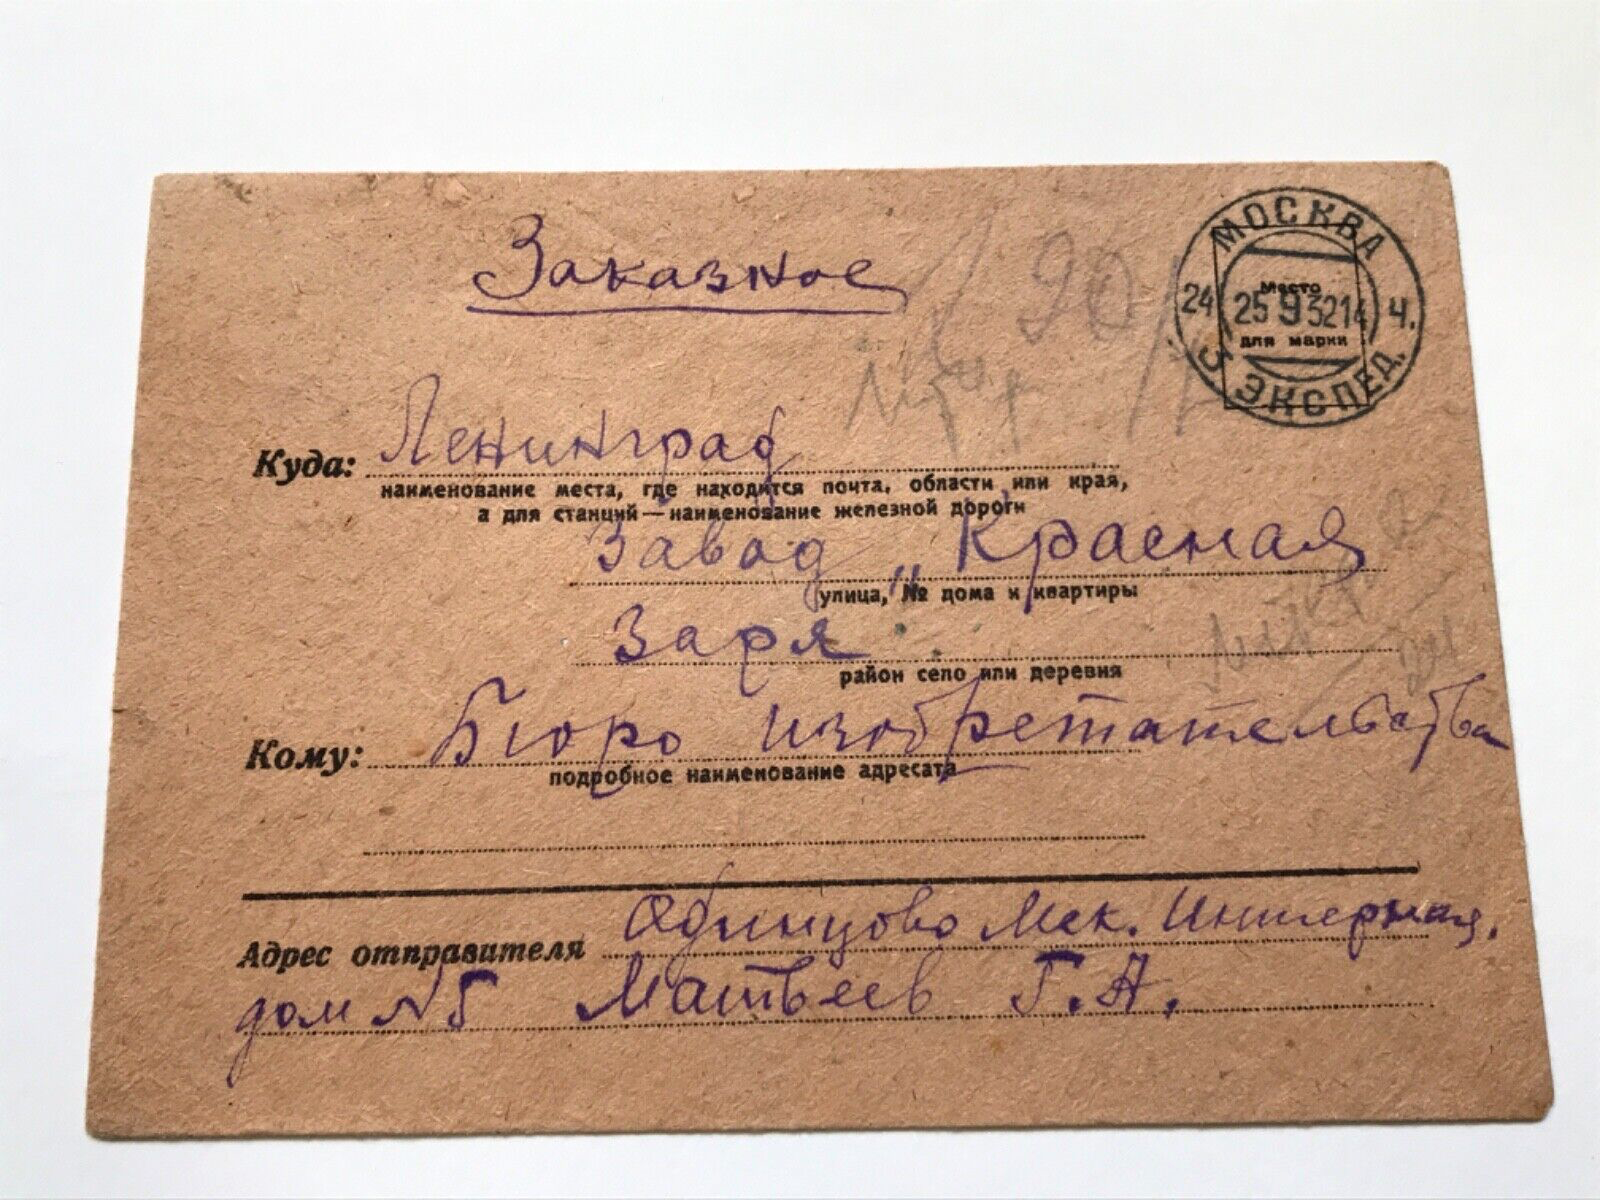 Заказное
МОСКВА
Место
24 25 9 32 14 ч.
для марки
3 ЭКСПЕД.
20
Куда: Ленинград
наименование места, где находится почта, области или края,
а для станций—наименование железной дороги
Завод „Красная
улица, № дома и квартиры
Заря
район село или деревня
Кому: Бюро изобретательства
подробное наименование адресата
Адрес отправителя Одинцово Мск. Интерная,
дом №5 Матвеев Г.А.